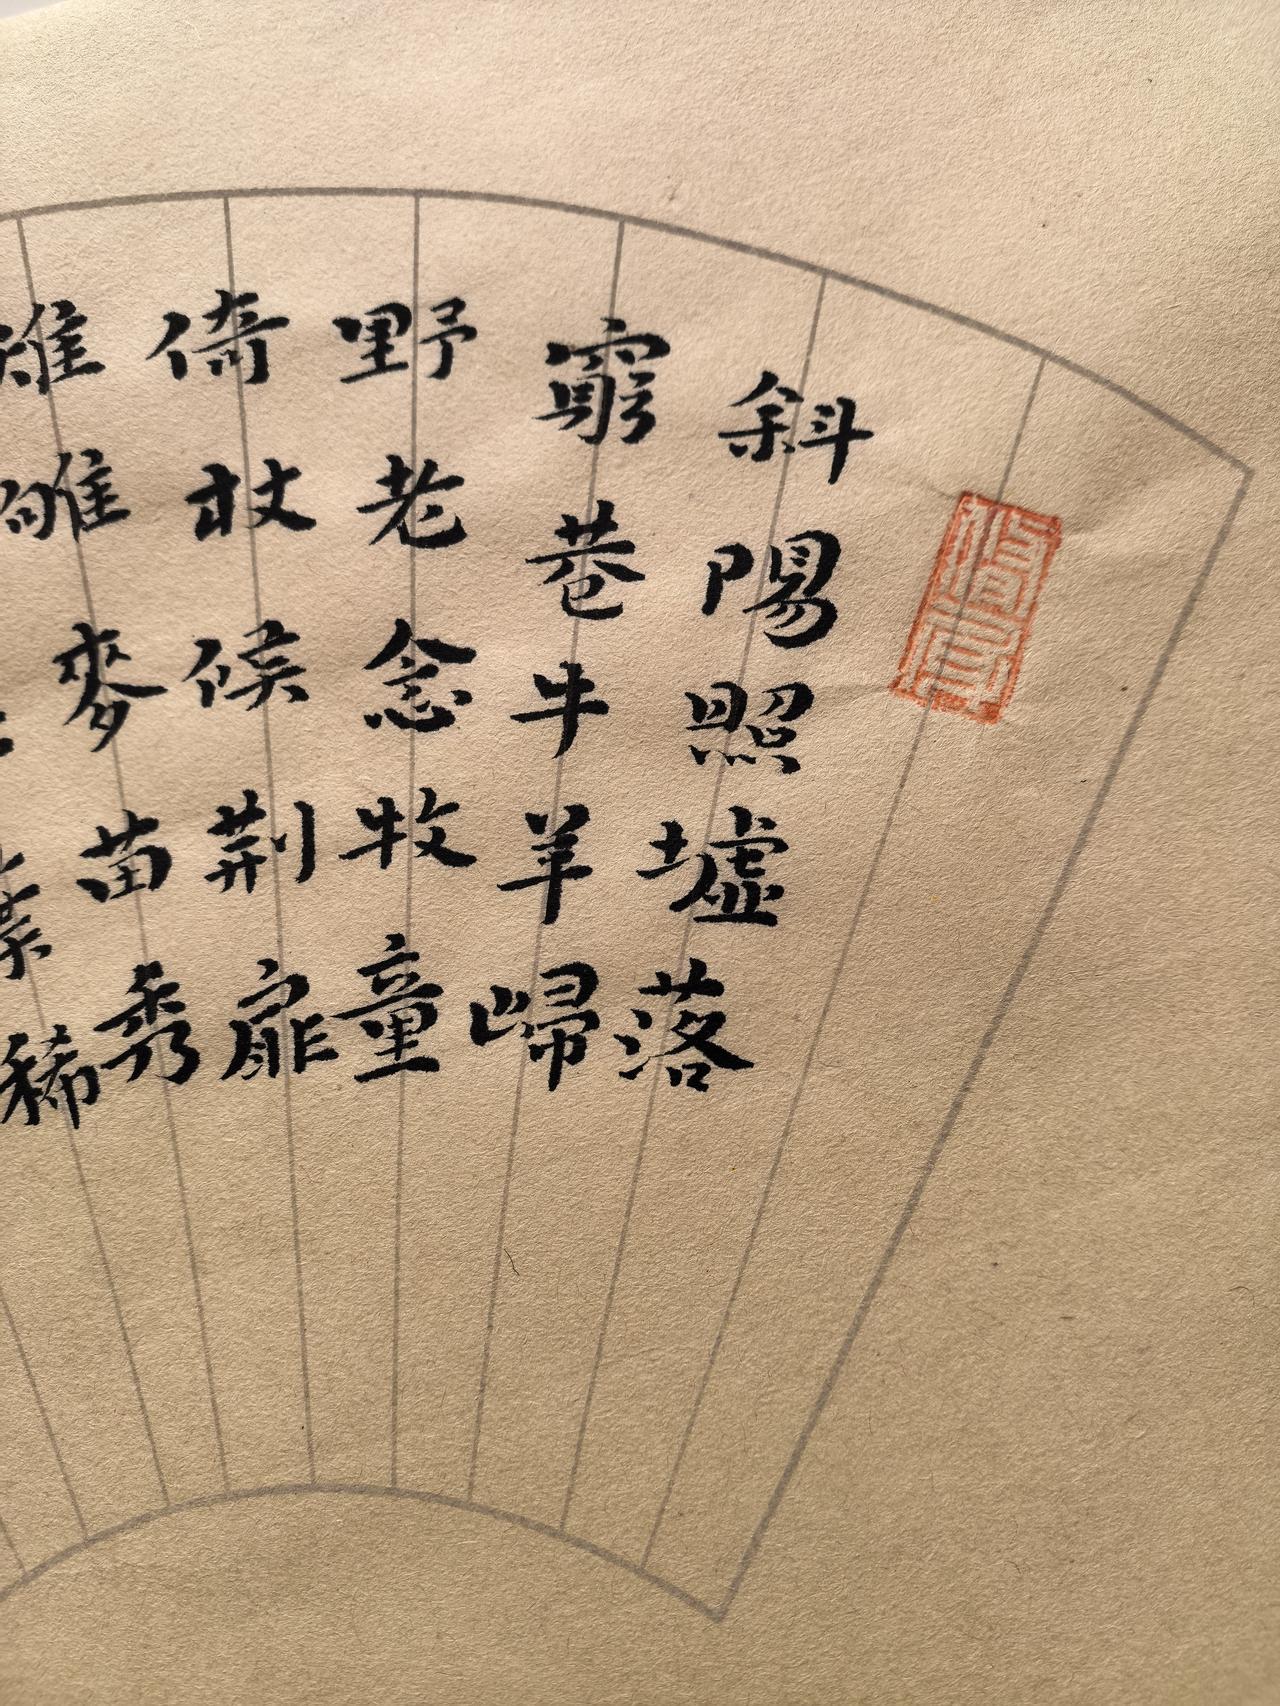 斜陽照墟落
窮巷牛羊歸
野老念牧童
倚杖候荊扉
雉雊麥苗秀
稀